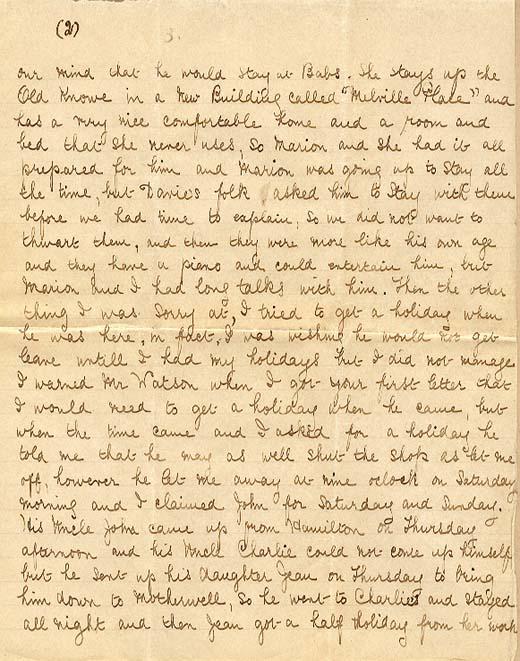 (2)
our mind that he would stay at Babs. She stays up the
Old Knowe in a New Building called "Melville Place" and
has a very nice comfortable home and a room and
bed that she never uses, so Marion and she had it all
prepared for him and Marion was going up to stay all
the time, but Davie's folk asked him to stay with them
before we had time to explain, so we did not want to
thwart them, and then they were more like his own age
and they have a piano and could entertain him, but
Marion and I had long talks with him. Then the other
thing I was sorry at, I tried to get a holiday when
he was here, in fact, I was wishing he would not get
leave untill I had my holidays but I did not manage
I warned Mr Watson when I got your first letter that
I would need to get a holiday when he came, but
when the time came and I asked for a holiday he
told me that he may as well shut the shop as let me
off, however he let me away at nine oclock on Saturday
morning and I claimed John for Saturday and Sunday.
His Uncle John came up from Hamilton on Thursday
afternoon and his Uncle Charlie could not come up himself
but he sent up his daughter Jean on Thursday to bring
him down to Motherwell, so he went to Charlies and stayed
all night and then Jean got a half holiday from her work